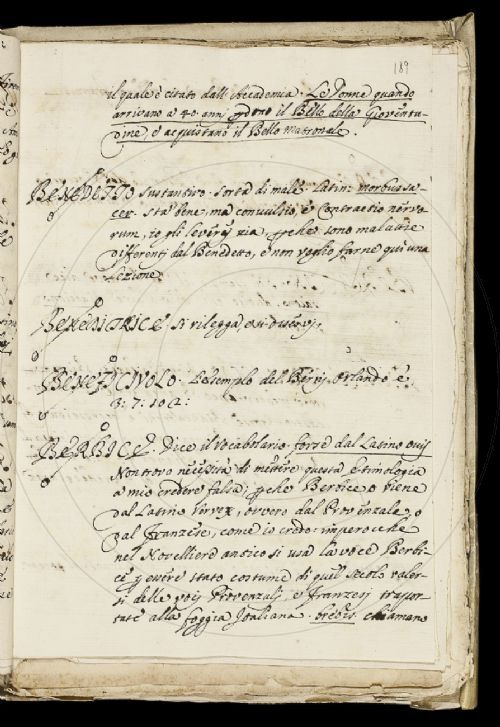 189
il quale è citato dall'Accademia. Le Donne quando
arrivano a 40 anni perdono il Bello della Gioventu-
dine, e acquistano il Bello Matronale.
BENEDETTO sustantivo. sorta di male. Latin: morbus sa-
cer. sta bene, ma convulsio, e Contractio nervo-
rum, io gli leverei via, perche sono malattie
differenti dal Benedetto, e non voglio farne qui una
lezione
BENEDITRICE si rilegga, e si osservi.
BENEDICIVOLO. L'esemplo del Berni Orlando è
3: 7: 10 :
BERBICE Dice il vocabolario forse dal Latino ovis
Non trovo necessità di mettere questa etimologia
a mio credere falsa; perche Berbice o viene
dal Latino Virvex, ovvero dal Provenzale, o
dal Franzese, come io credo: imperocche
nel Novelliero antico si usa la voce Berbi-
ce per essere stato costume di quel secolo valer-
si delle voci Provenzali, e Franzesi traspor-
tate alla foggia Italiana. brebis chiamano